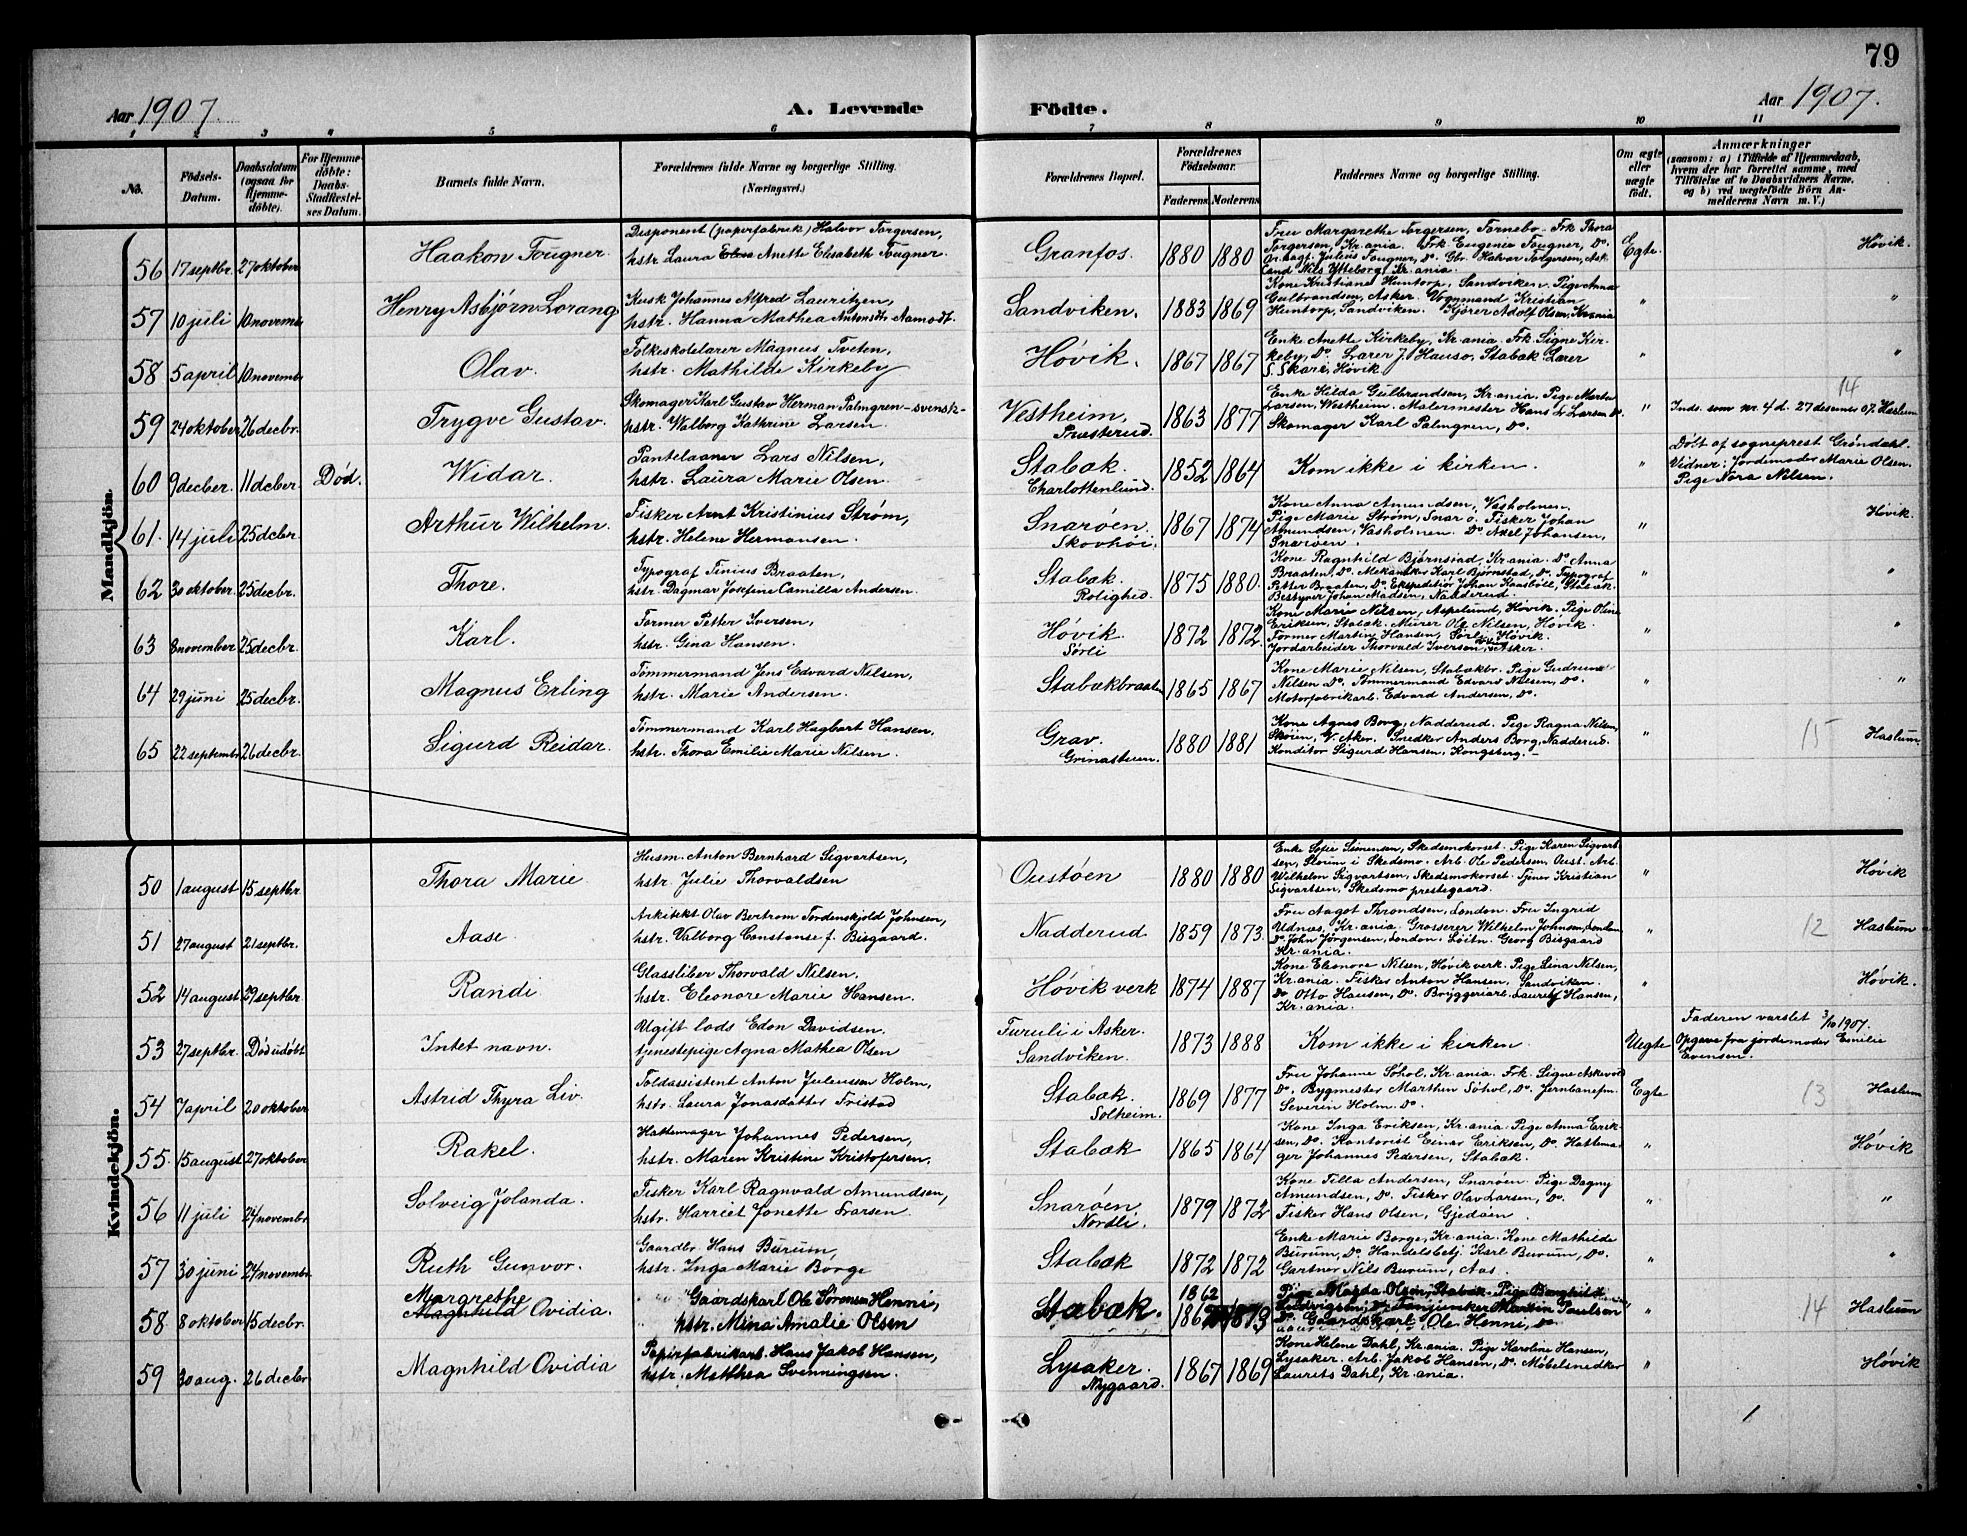 79
Aar 1907.
A. Levende
Födte.
Aar 1907.
1 2 3 " 5 6 7 8 9 10 11
No.
Födsels-Datum.
Daabsdatum (ogsaa for Hjemme-döbte).
For Hjemme-döbte: Daabs-Stadfæstel-ses Datum.
Barnets fulde Navn.
Forældrenes fulde Navne og borgerlige Stilling. (Næringsvei.)
Forældrenes Bopæl.
Forældrenes Födselsaar.
Faderens Moderens
Faddernes Navne og borgerlige Stilling.
Om ægte eller uægte födt.
Anmærkninger
(saasom: a) i Tilfælde af Hjemmedaab, hvem der har forrettet samme, med Tilföielse af to Daabsvidners Navne, og b) ved uægtefödte Börn An-melderens Navn m. V.)
Mandkjön.
56 17 septbr. 27 oktober
Haakon Fougner.
Disponent (papirfabrik) Halvor Torgersen,
hstr Laura Anette Elisabeth Fougner.
Granfos.
1880 1880
Fru Margarethe Torgersen, Fornebo. Frk Thora
Torgersen, Kr.ania. Frk Eugenie Fougner, Do.
Julius Fougner, Do. Gbr. Halvor Torgersen, Ask
Cand Nils Ytteborg Kr.ania.
Egte
Høvik.
57 10 juli 10 novembr
Henry Asbjørn Lorang
Kusk Johannes Alfred Lauritzen,
hstr. Hanna Mathea Antonsdtr Aamodt.
Sandviken.
1883 1869
Kone Kristiane Huntorp, Sandviken. Pige Anna
Gulbrandsen, Asker. Vognmand Kristian
Huntorp, Sandviken. Kjører Adolf Olsen, Kr.ania
"
"
58 5 april 10 novembr
Olav.
Folkeskolelærer Magnus Tveten,
hstr. Mathilde Kirkeby
Høvik.
1867 1867
Enke Anette Kirkeby, Kr.ania. Frk. Signe Kir-
keby, Do. Lærer J. Hauso, Stabæk Lærer
S. Skare, Høvik
"
"
59 24 oktober 26 decbr.
Trygve Gustav.
Skomager Karl Gustav Herman Palmgren - svensk -
hstr. Walborg Kathrine Larsen.
Vestheim,
Præsterud.
1863 1877
Enke Hilda Gulbrandsen, Kr.ania. Pige Marta
Larsen, Vestheim. Malermester Hans L. Larsen Do.
Skomager Karl Palmgren, Do.
"
14
Inds. som nr. 4 d. 27 desember 07. Haslum
60 9 decber. 11 dcber. Død.
Widar.
Pantelaaner Lars Nilsen,
hstr. Laura Marie Olsen.
Stabæk.
Charlottenlund.
1852 1864
Kom ikke i kirken.
"
Døbt af sogneprest Grøndahl.
Vidner: Jordemoder Marie Olsen.
Pige Nora Nilsen.
61. 14 juli 25 dcbr.
Arthur Wilhelm.
Fisker Arnt Kristinius Strøm,
hstr. Helene Hermansen.
Snarøen.
Skovhøi.
1867 1874
Kone Anna Amundsen, Vasholmen.
Pige Marie Strøm, Snarø. Fisker Johan
Amundsen, Vasholmen. Do Axel Johansen,
Snarøen.
"
Høvik.
62 30 oktober. 25 decbr.
Thore.
Typograf Tinius Braaten,
hstr. Dagmar Josefine Camilla Andersen.
Stabæk.
Rolighed.
1875 1880
Kone Ragnhild Bjørnstad, Kr.ania. Do. Anna
Braaten, Do. Mekaniker Karl Bjørnstad, Do. Typograf
Petter Braaten, Do. Ekspeditør Johan Kaasbøll, Stabæk.
Bestyrer Johan Madsen, Nadderud.
"
"
63 8 november 25 decbr.
Karl.
Former Petter Iversen,
hstr. Gina Hansen.
Høvik.
Sørli
1872 1872
Kone Marie Nilsen, Aspelund, Høvik. Pige Oline
Eriksen, Stabæk. Murer Ole Nilsen, Høvik.
Former Martin Hansen, Sørli, Høvik.
Jordarbeider Thorvald Iversen, Asker.
"
"
64 29 juni 25 decbr.
Magnus Erling
Tømmermand Jens Edvard Nilsen,
hstr. Marie Andersen.
Stabækbraaten
1865 1867
Kone Marie Nilsen, Stabækbr. Pige Gudrun
Nilsen Do. Tømmermand Edvard Nilsen, Do.
Motorfabrikarb. Edvard Andersen, Do.
"
"
65 22 septembr 26 decbr.
Sigurd Reidar.
Tømmermand Karl Hagbart Hansen,
hstr. Thora Emilie Marie Nilsen.
Grav.
Grinastuen.
1880 1881
Kone Agnes Borg, Nadderud. Pige Ragna Nilsen,
Skøien, V. Aker. Snedker Anders Borg, Nadderud.
Konditor Sigurd Hansen, Kongsberg. -
"
15 Haslum
Kvindekjön.
50 1 august 15 septbr.
Thora Marie
Husm. Anton Bernhard Sigvartsen,
hstr. Julie Thorvaldsen
Oustøen
1880 1880
Enke Sofie Simensen, Skedsmokorset. Pige Karen Sigvart-
sen, Skedsmo. Arb. Ole Pedersen, Oust. Arb.
Wilhelm Sigvartsen, Skedsmokorset. Tjener Kristian
Sigvartsen, Skedsmo prestegaard.
"
Høvik
51 27 august 21 septbr.
Aase.
Arkitekt Olav Bertrom Tordenskjold Johnsen,
hstr. Valborg Constanse f. Bisgaard.
Nadderud
1859 1873.
Fru Aagot Throndsen, London. Fru Ingrid
Udnæs, Kr.ania. Grosserer Wilhelm Johnsen, London
Do. John Jørgensen, London. Løitn. Georg Bisgaard
Kr.ania.
"
12 Haslum
52 14 august 29 septbr.
Randi
Glassliber Thorvald Nilsen.
hstr. Eleonore Marie Hansen.
Høvik verk
1874 1887
Kone Eleonore Nilsen, Høvik verk. Pige Lina Nilsen,
Kr.ania. Fisker Anton Hansen, Sandviken.
Do Otto Hansen, Do. Bryggeriarb. Laurits Hansen,
Kr.ania.
"
Høvik.
53 27 septbr. Død udøbt
Intet navn.
Ugift lods Edon Davidsen.
tjenestepige Agna Mathea Olsen
Furuli i Asker.
Sandviken.
1873 1888
Kom ikke i kirken
Uegte
Faderen varslet 3/10 1907.
Opgave fra jordemoder Emilie
Evensen.
54 7 april 20 oktober
Astrid Thyra Liv.
Toldassistent Anton Juleussen Holm,
hstr. Laura Jonasdatter Fristad
Stabæk.
Solheim.
1869 1877
Fru Johanne Søhol, Kr.ania. Frk. Signe Askevold
Do. Bygmester Marthin Søhol, Do. Jernbanefm.
Severin Holm. Do.
Egte
13 Haslum
55. 15 august 27 oktober
Rakel.
Hattemager Johannes Pedersen,
hstr. Maren Kristine Kristofersen.
Stabæk
1865 1864
Kone Inga Eriksen, Kr.ania. Pige Anna Erik-
sen, Do. Kontorist Einar Eriksen, Do. Hattema-
ger Johannes Pedersen, Stabæk.
"
Høvik
56 11 juli 24 novembr
Solveig Jolanda.
Fisker Karl Ragnvald Amundsen,
hstr. Harriet Jonette Larsen.
Snarøen
Nordli.
1879 1872
Kone Tilla Andersen, Snarøen. Pige Dagny
Amundsen, Do. Fisker Olav Larsen, Do.
Fisker Hans Olsen, Gjedøen.
"
"
57 30 juni 24 novembr
Ruth Gunvor.
Gaardbr. Hans Burum,
hstr. Inga Marie Borge
Stabæk
1872 1872
Enke Marie Borge, Kr.ania. Kone Mathilde
Burum, Do. Handelsbetj. Karl Burum, Do.
Gartner Nils Burum, Aas.
"
"
58 8 oktober 15 decbr.
Margrethe
Magnhild Ovidia.
Gaardskarl Ole Sørensen Henni,
hstr. Mina Amalie Olsen
Stabæk.
1862
1867 1873
Pige Magda Olsen, Stabæk. Pige
Martin Paulsen
Do. Gaardskarl Ole Henni, Do.
"
14 Haslum
59 30 aug. 26 decbr
Magnhild Ovidia
Papirfabrikarb. Hans Jakob Hansen,
hstr. Matthea Svenningsen.
Lysaker.
Nygaard.
1867 1869
Kone Helene Dahl, Kr.ania. Pige Karoline Hansen,
Lysaker. Arb. Jakob Hansen, Do. Møbelsnedker
Laurits Dahl, Kr.ania.
"
Høvik